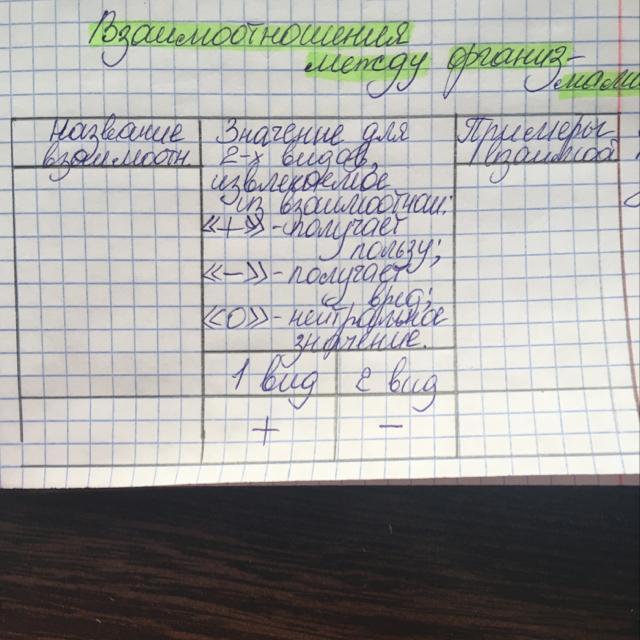 Взаимоотношения
между организ-
мами
Название
взаимоотн
Значение для
2-х видов,
извлекаемое
из взаимоотнош:
«+» - получает
пользу;
«–» - получает
вред;
«0» - нейтральное
значение.
Примеры
взаимоо
1 вид
2 вид
+
–